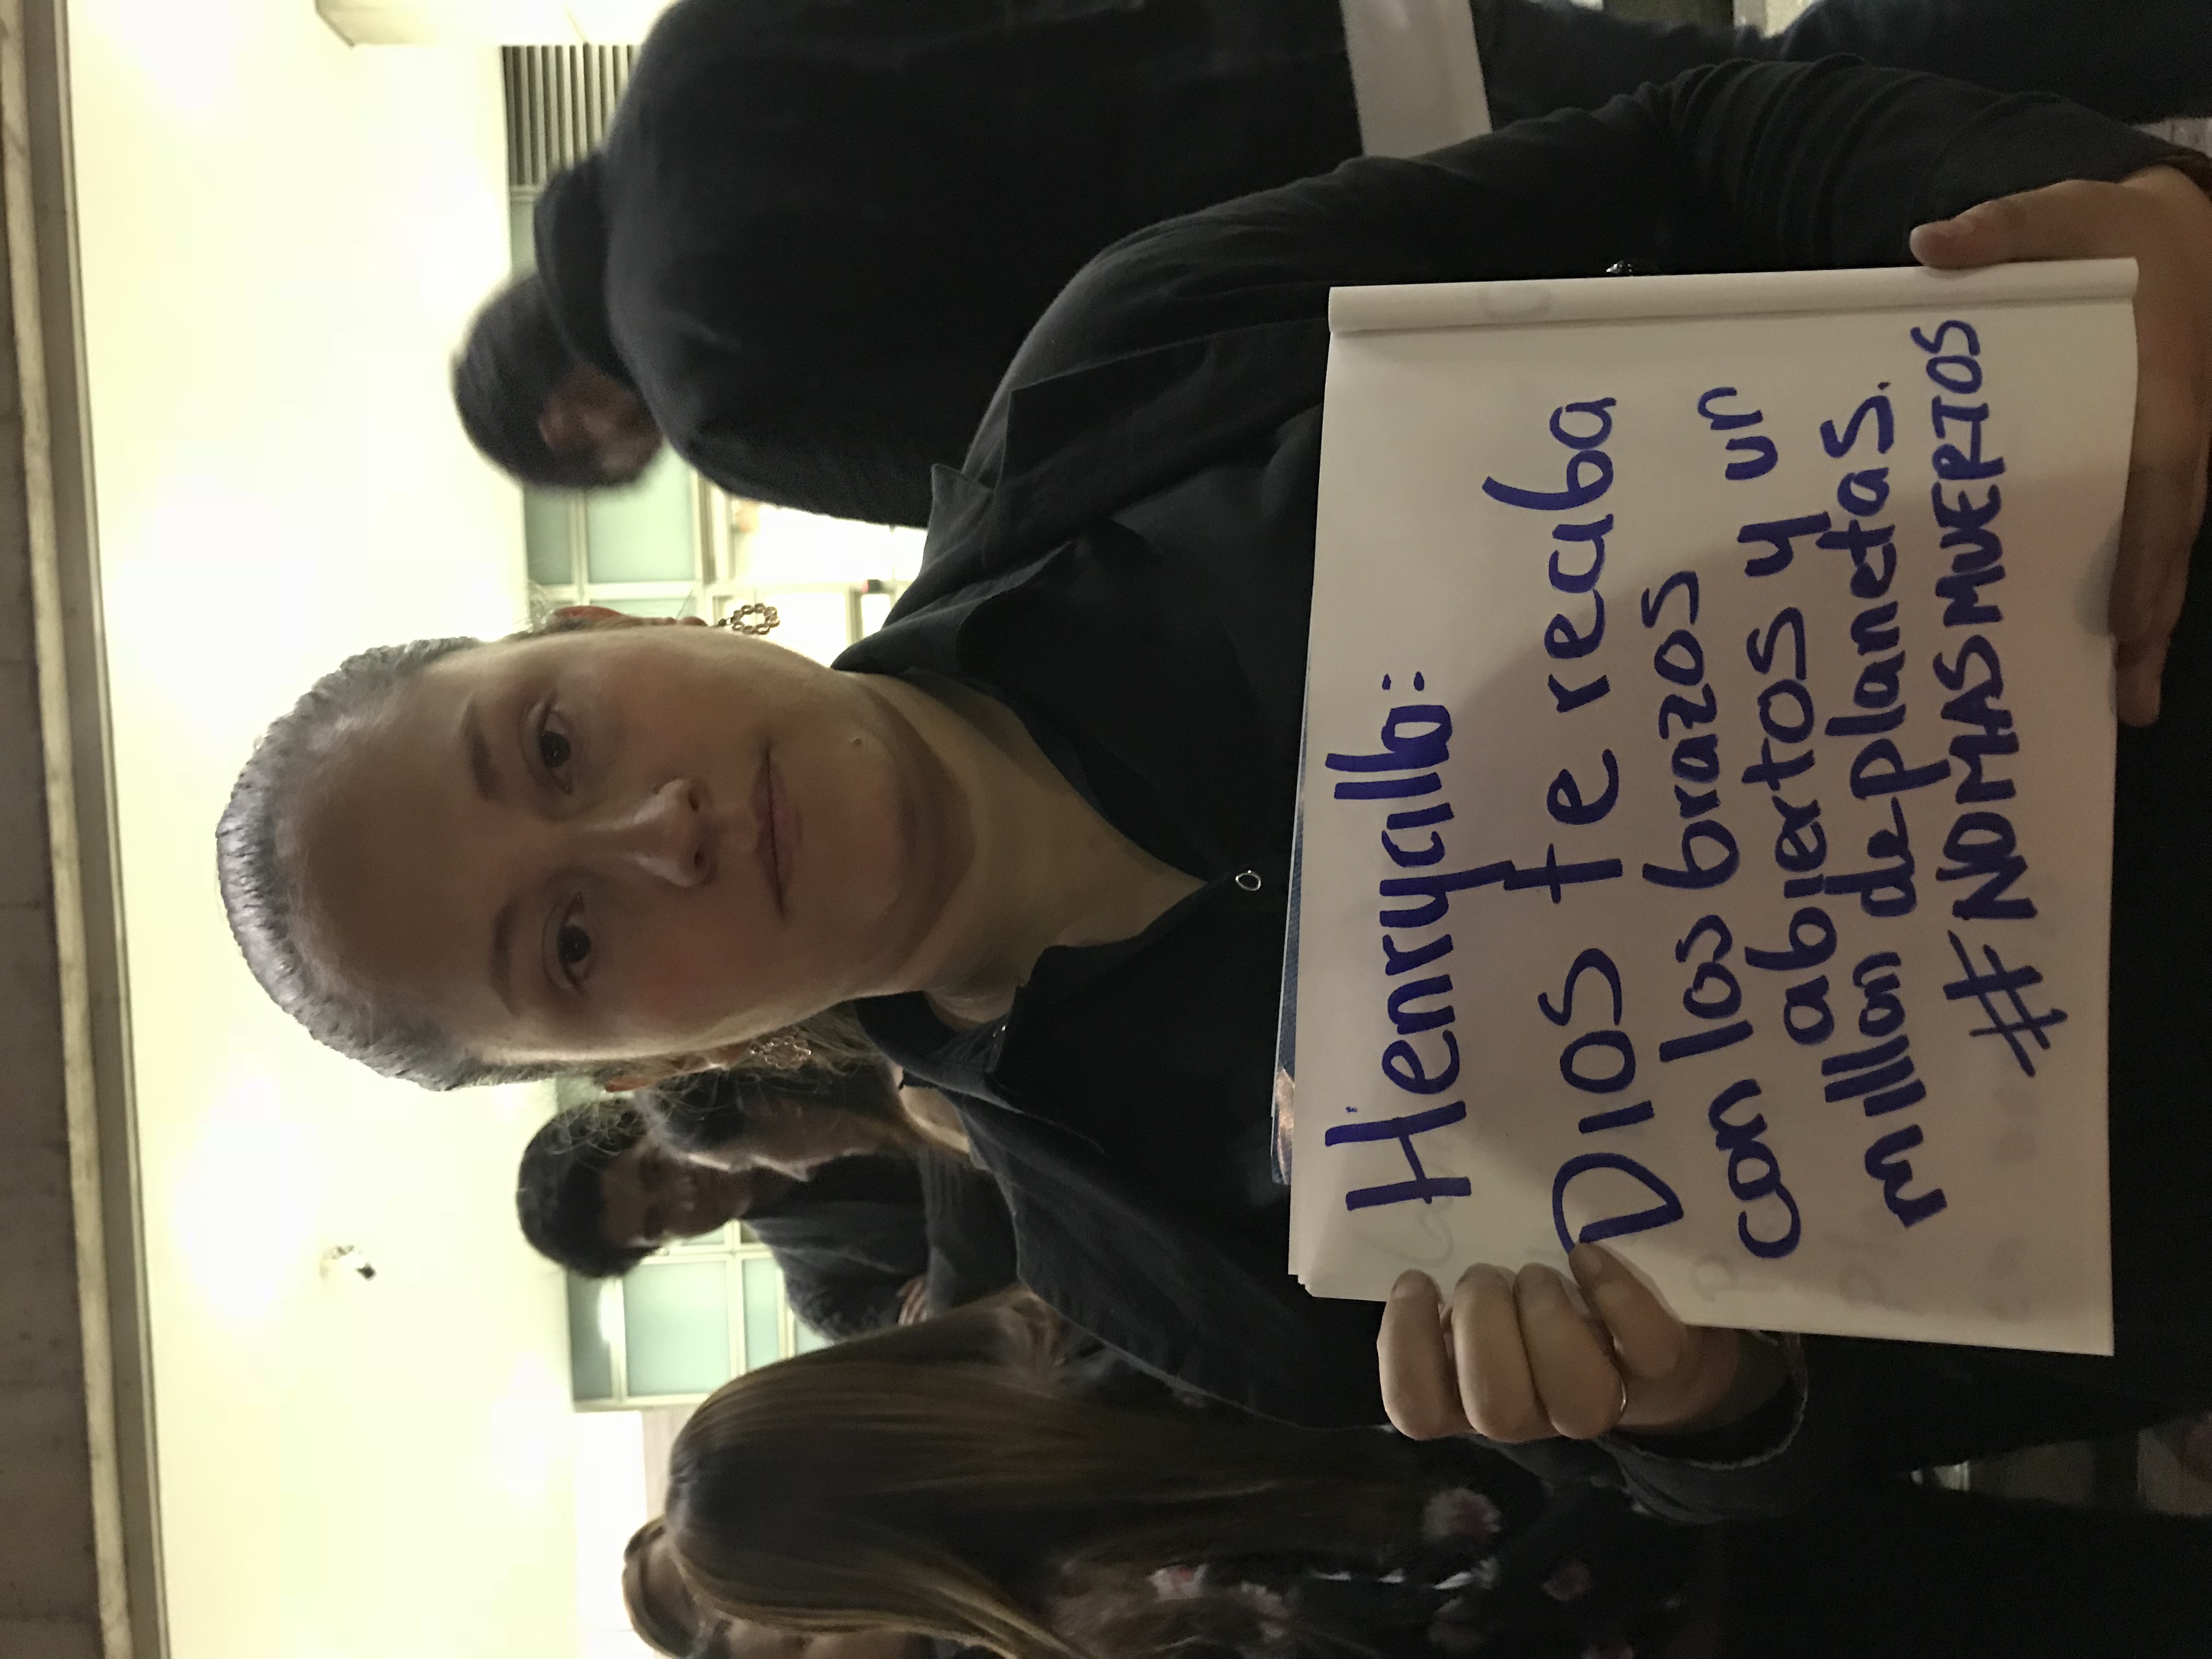 Henrycillo:
Dios te reciba
con los brazos
abiertos y un
millon de planetas.
#NOMASMUERTOS